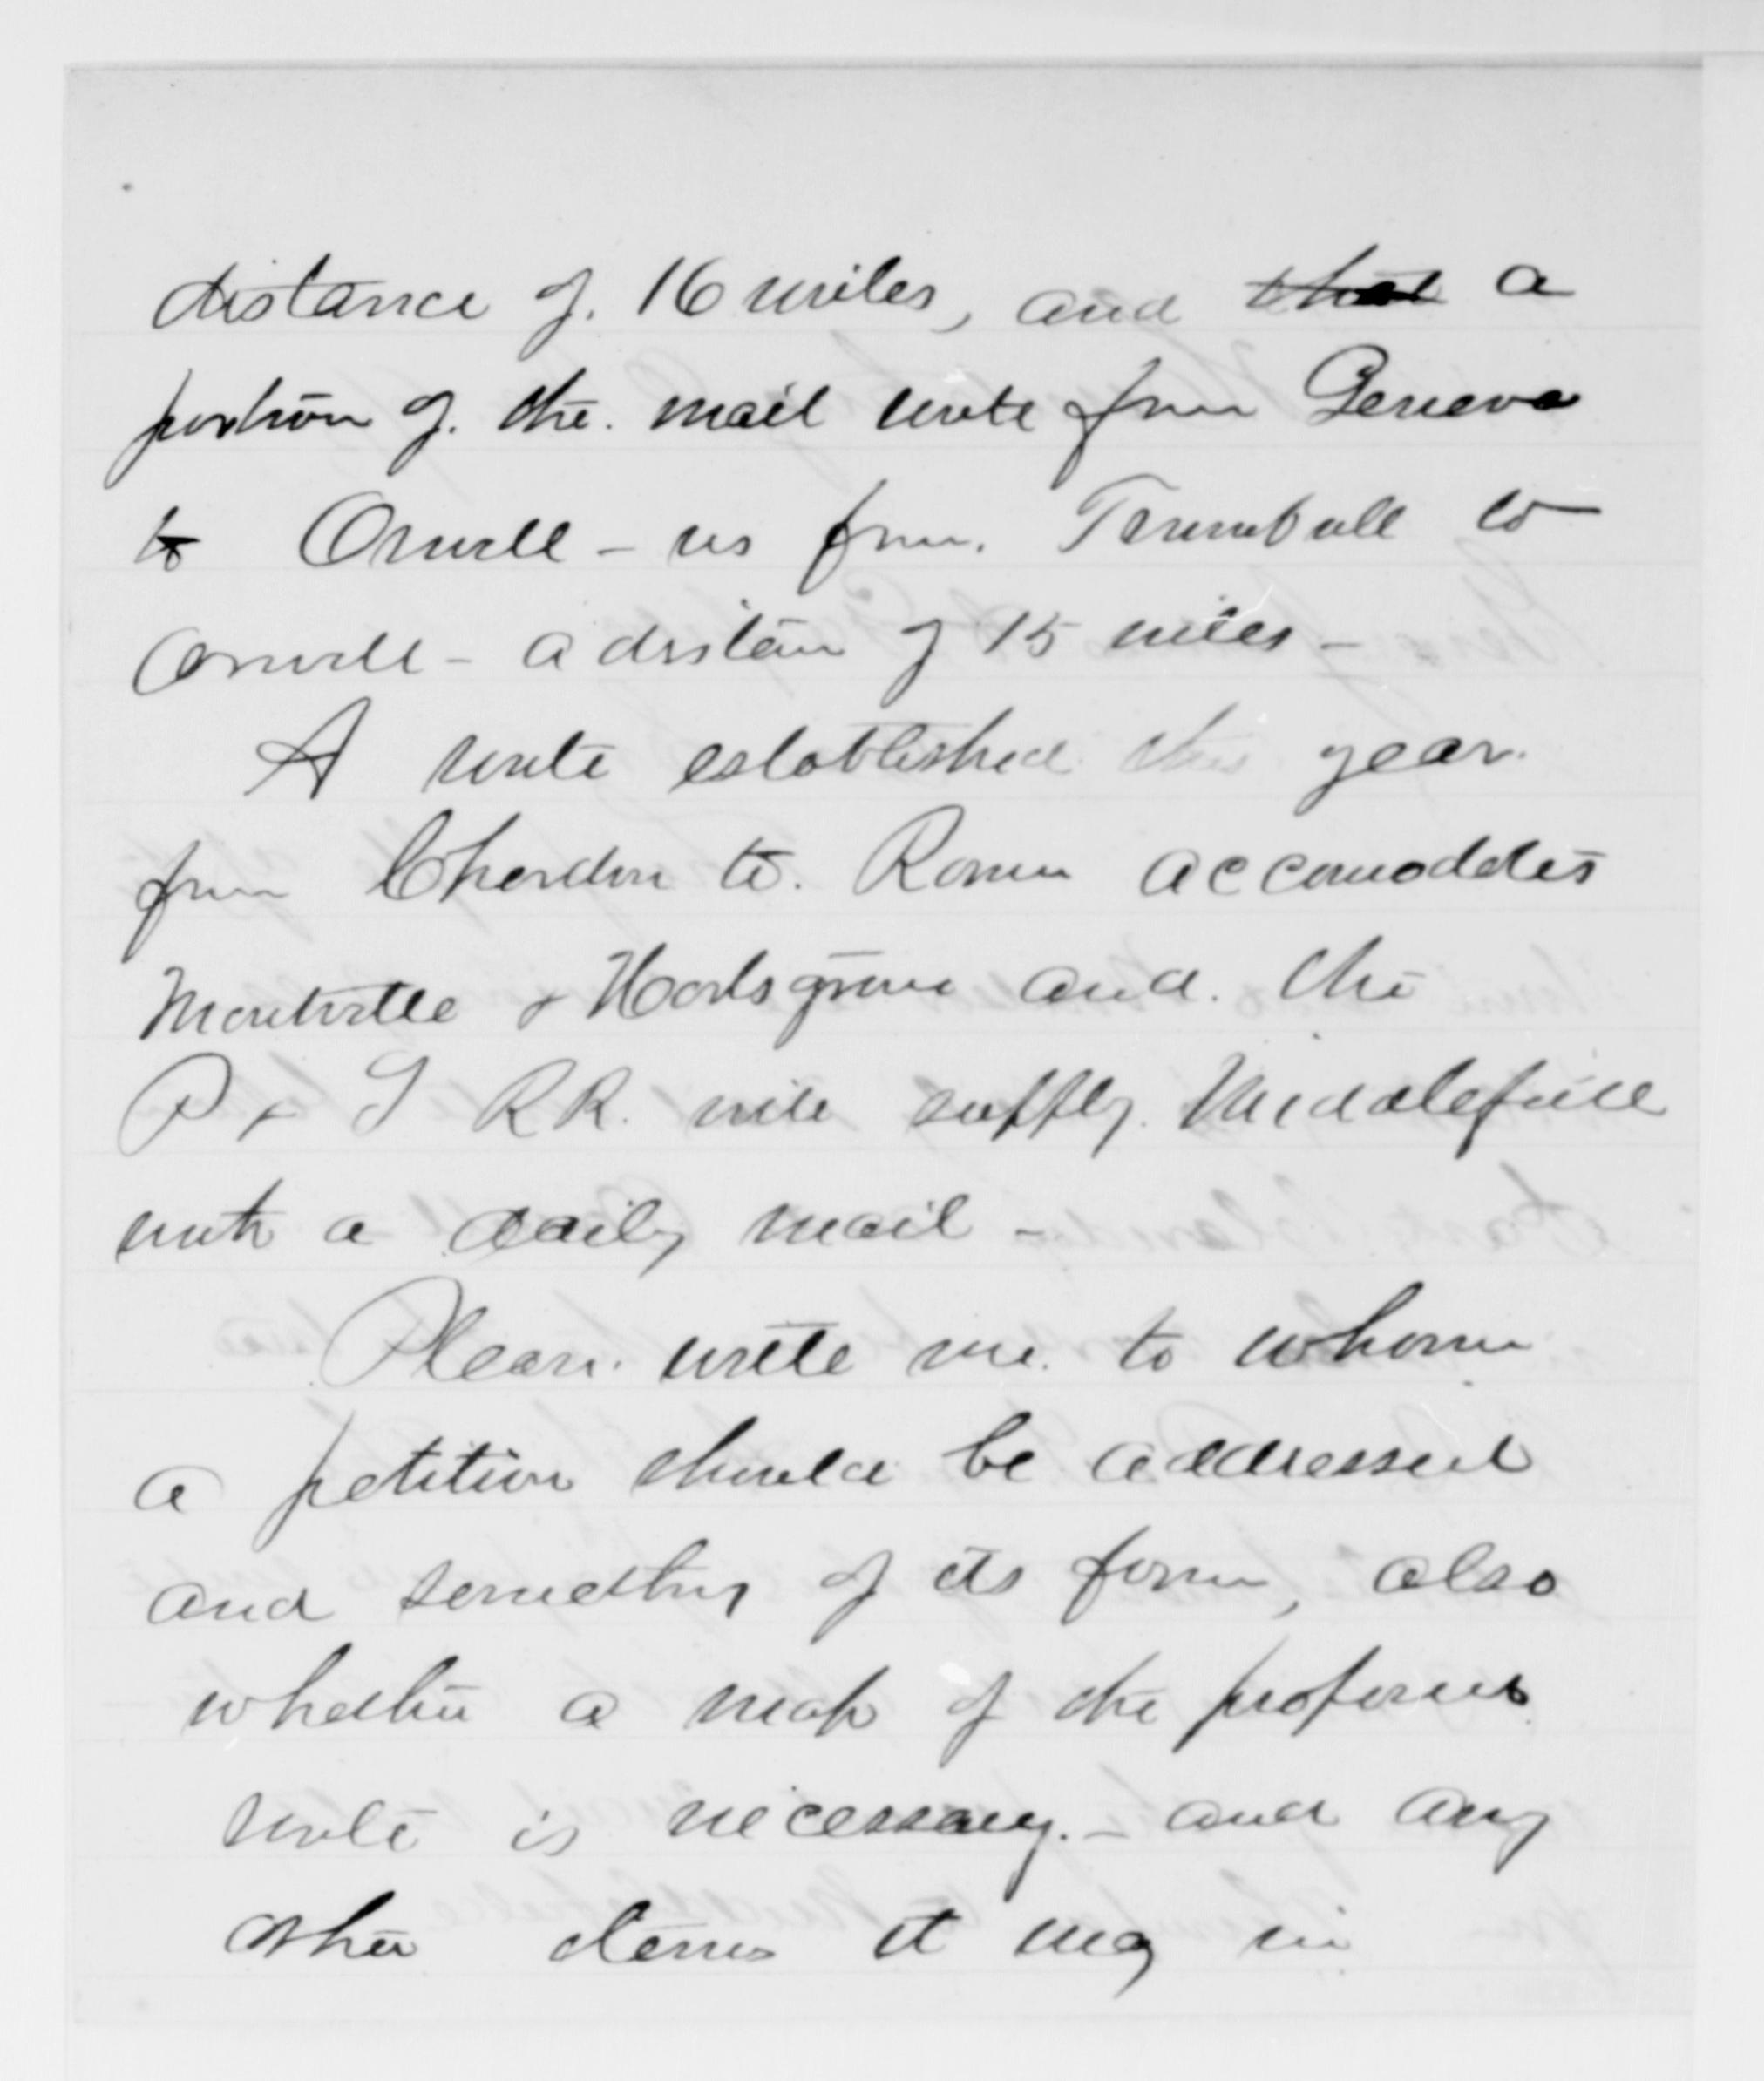 distance of 16 miles, and that a
portion of the mail route from Geneva
to Orwell - is from Trumbull to
Orwell - a distan of 15 miles -
A route established this year
from Chardon to Rome accomodates
Montville & Hartsgrove and the
P & RR. will supply Middlefield
with a daily mail -
Please write me to whom
a petition should be addressed
and something of its form, also
whether a map of the proposed
route is necessary - and any
other items it may in